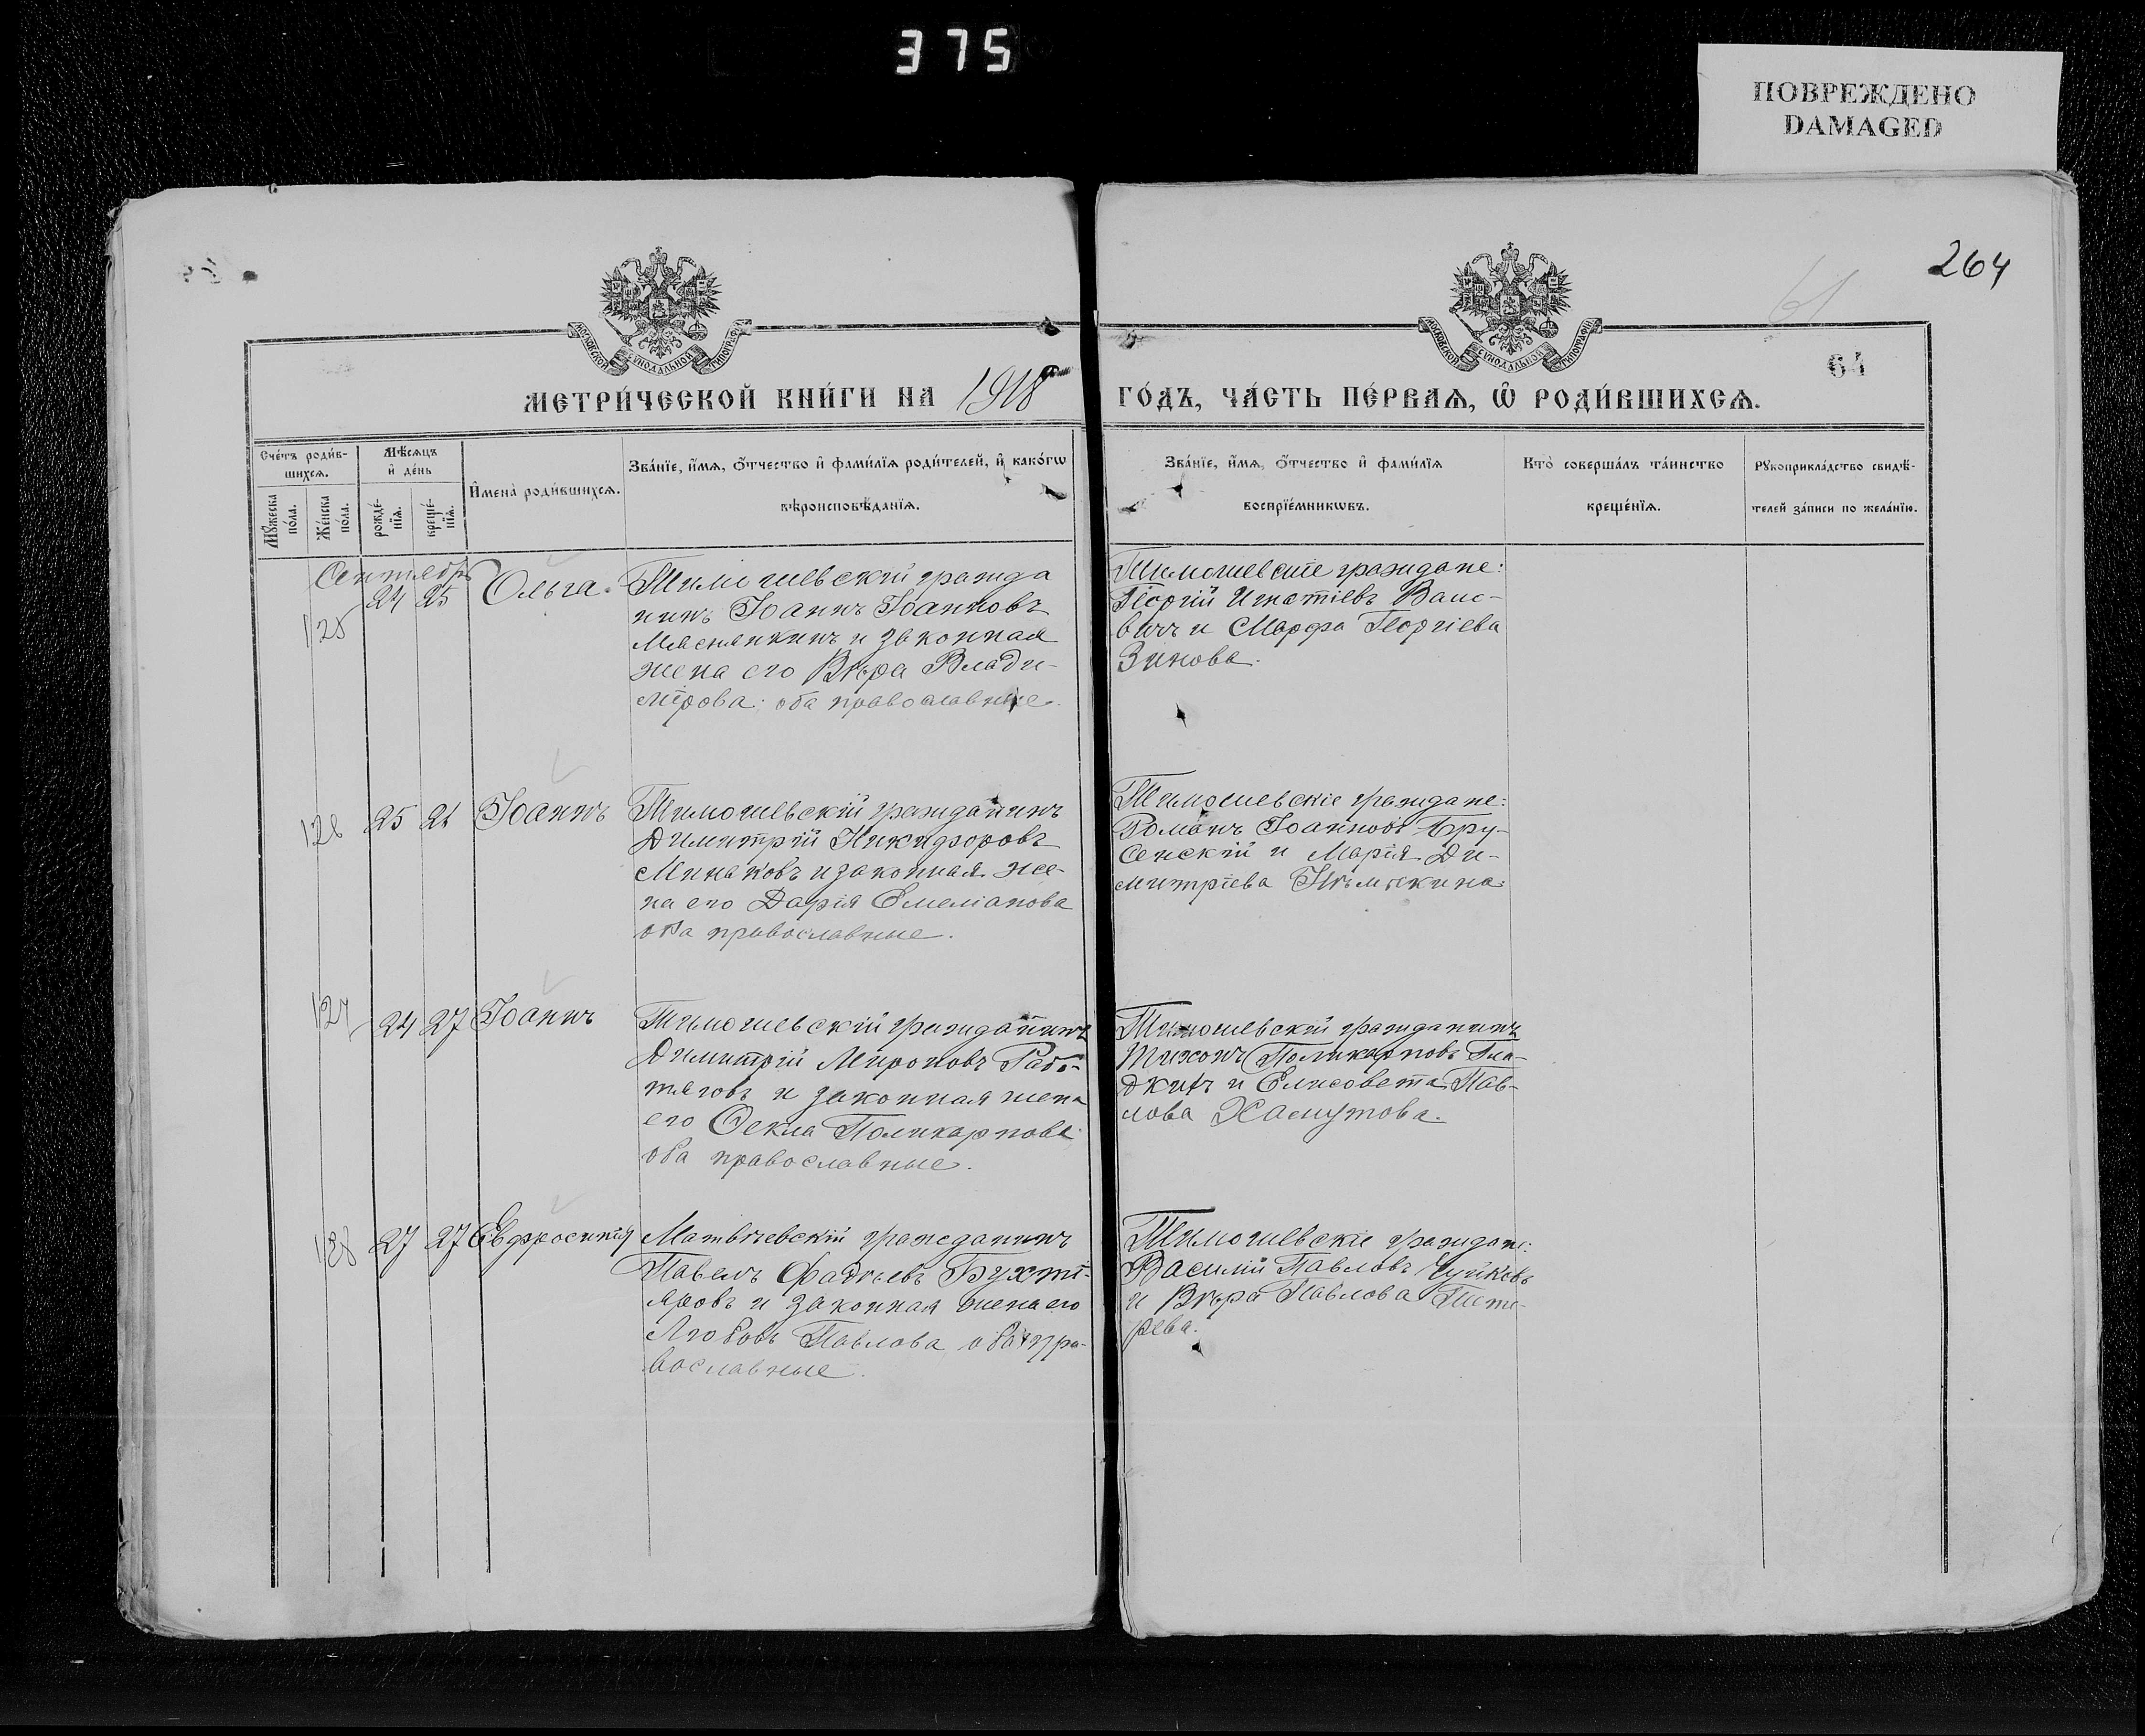 375
ПОВРЕЖДЕНО
DAMAGED
264
61
64
МОСКОВСКОЙ СѴНОДАЛЬНОЙ ТИПОГРАФІИ
МОСКОВСКОЙ СѴНОДАЛЬНОЙ ТИПОГРАФІИ
МЕТРИ́ЧЕСКОЙ КНИ́ГИ НА 1918
ГО́ДЪ, ЧА́СТЬ ПЕ́РВАѦ, Ѡ҆ РОДИ́ВШИХСѦ.
Сче́тъ роди́в-
шихсѧ.
Мꙋ́жеска
по́ла.
Же́нска
по́ла.
Мѣ́сѧцъ
и҆ де́нь
рожде́-
нїѧ.
креще́-
нїѧ.
И҆мена̀ роди́вшихсѧ.
Зва́нїе, и҆́мѧ, ѻ҆́тчество и҆ фами́лїѧ роди́телей, и҆ како́гѡ
вѣроисповѣ́данїѧ.
Зва́нїе, и҆́мѧ, ѻ҆́тчество и҆ фами́лїѧ
воспрїе́мникѡвъ.
Кто̀ соверша́лъ та́инство
креще́нїѧ.
Рꙋкоприкла́дство свидѣ́-
телей за́писи по жела́нїю.
Сентябрь
125 24 25 Ольга.
Тимошевскій гражда
нинъ Іоаннъ Іоанновъ
Мяснянкинъ и законная
жена его Вѣра Влади-
мірова: оба православные.
Тимошевскіе граждане:
Георгій Игнатіевъ Ванс-
вичъ и Марфа Георгіева
Зинова.
126 25 26 Іоаннъ
Тимошевскій гражданинъ
Димитрій Никифоровъ
Минаковъ и законная же-
на его Дарія Емеліанова
оба православные.
Тимошевскіе граждане:
Романъ Іоанновъ Бру-
сенскій и Марія Ди-
митріева
127 24 27 Іоаннъ
Тимошевскій гражданинъ
Димитрій Мироновъ Рабо-
тяговъ и законная жена
его Ѳекла Поликарпова
оба православные.
Тимошевскій гражданинъ
Тихонъ Поликарповъ Гла-
дкихъ и Елисовета Пав-
лова Хамутова.
128 27 27 Евфросинія
Матвѣевскій гражданинъ
Павелъ Фадѣевъ Бухті-
яровъ и законная жена его
Любовь Павлова оба пра-
вославные.
Тимошевскіе граждане:
Василій Павловъ Чуйковъ
и Вѣра Павлова Тете-
рева.